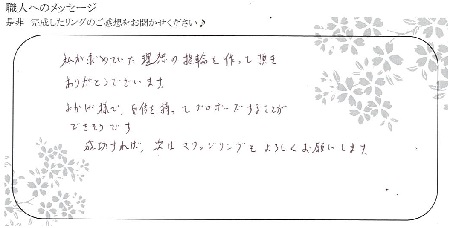 職人へのメッセージ
是非 完成したリングのご感想をお聞かせください♪
私が求めていた理想の指輪を作って頂き
ありがとうございます。
おかげ様で、自信を持ってプロポーズすることが
できそうです
成功すれば、次はマリッジリングもよろしくお願いします